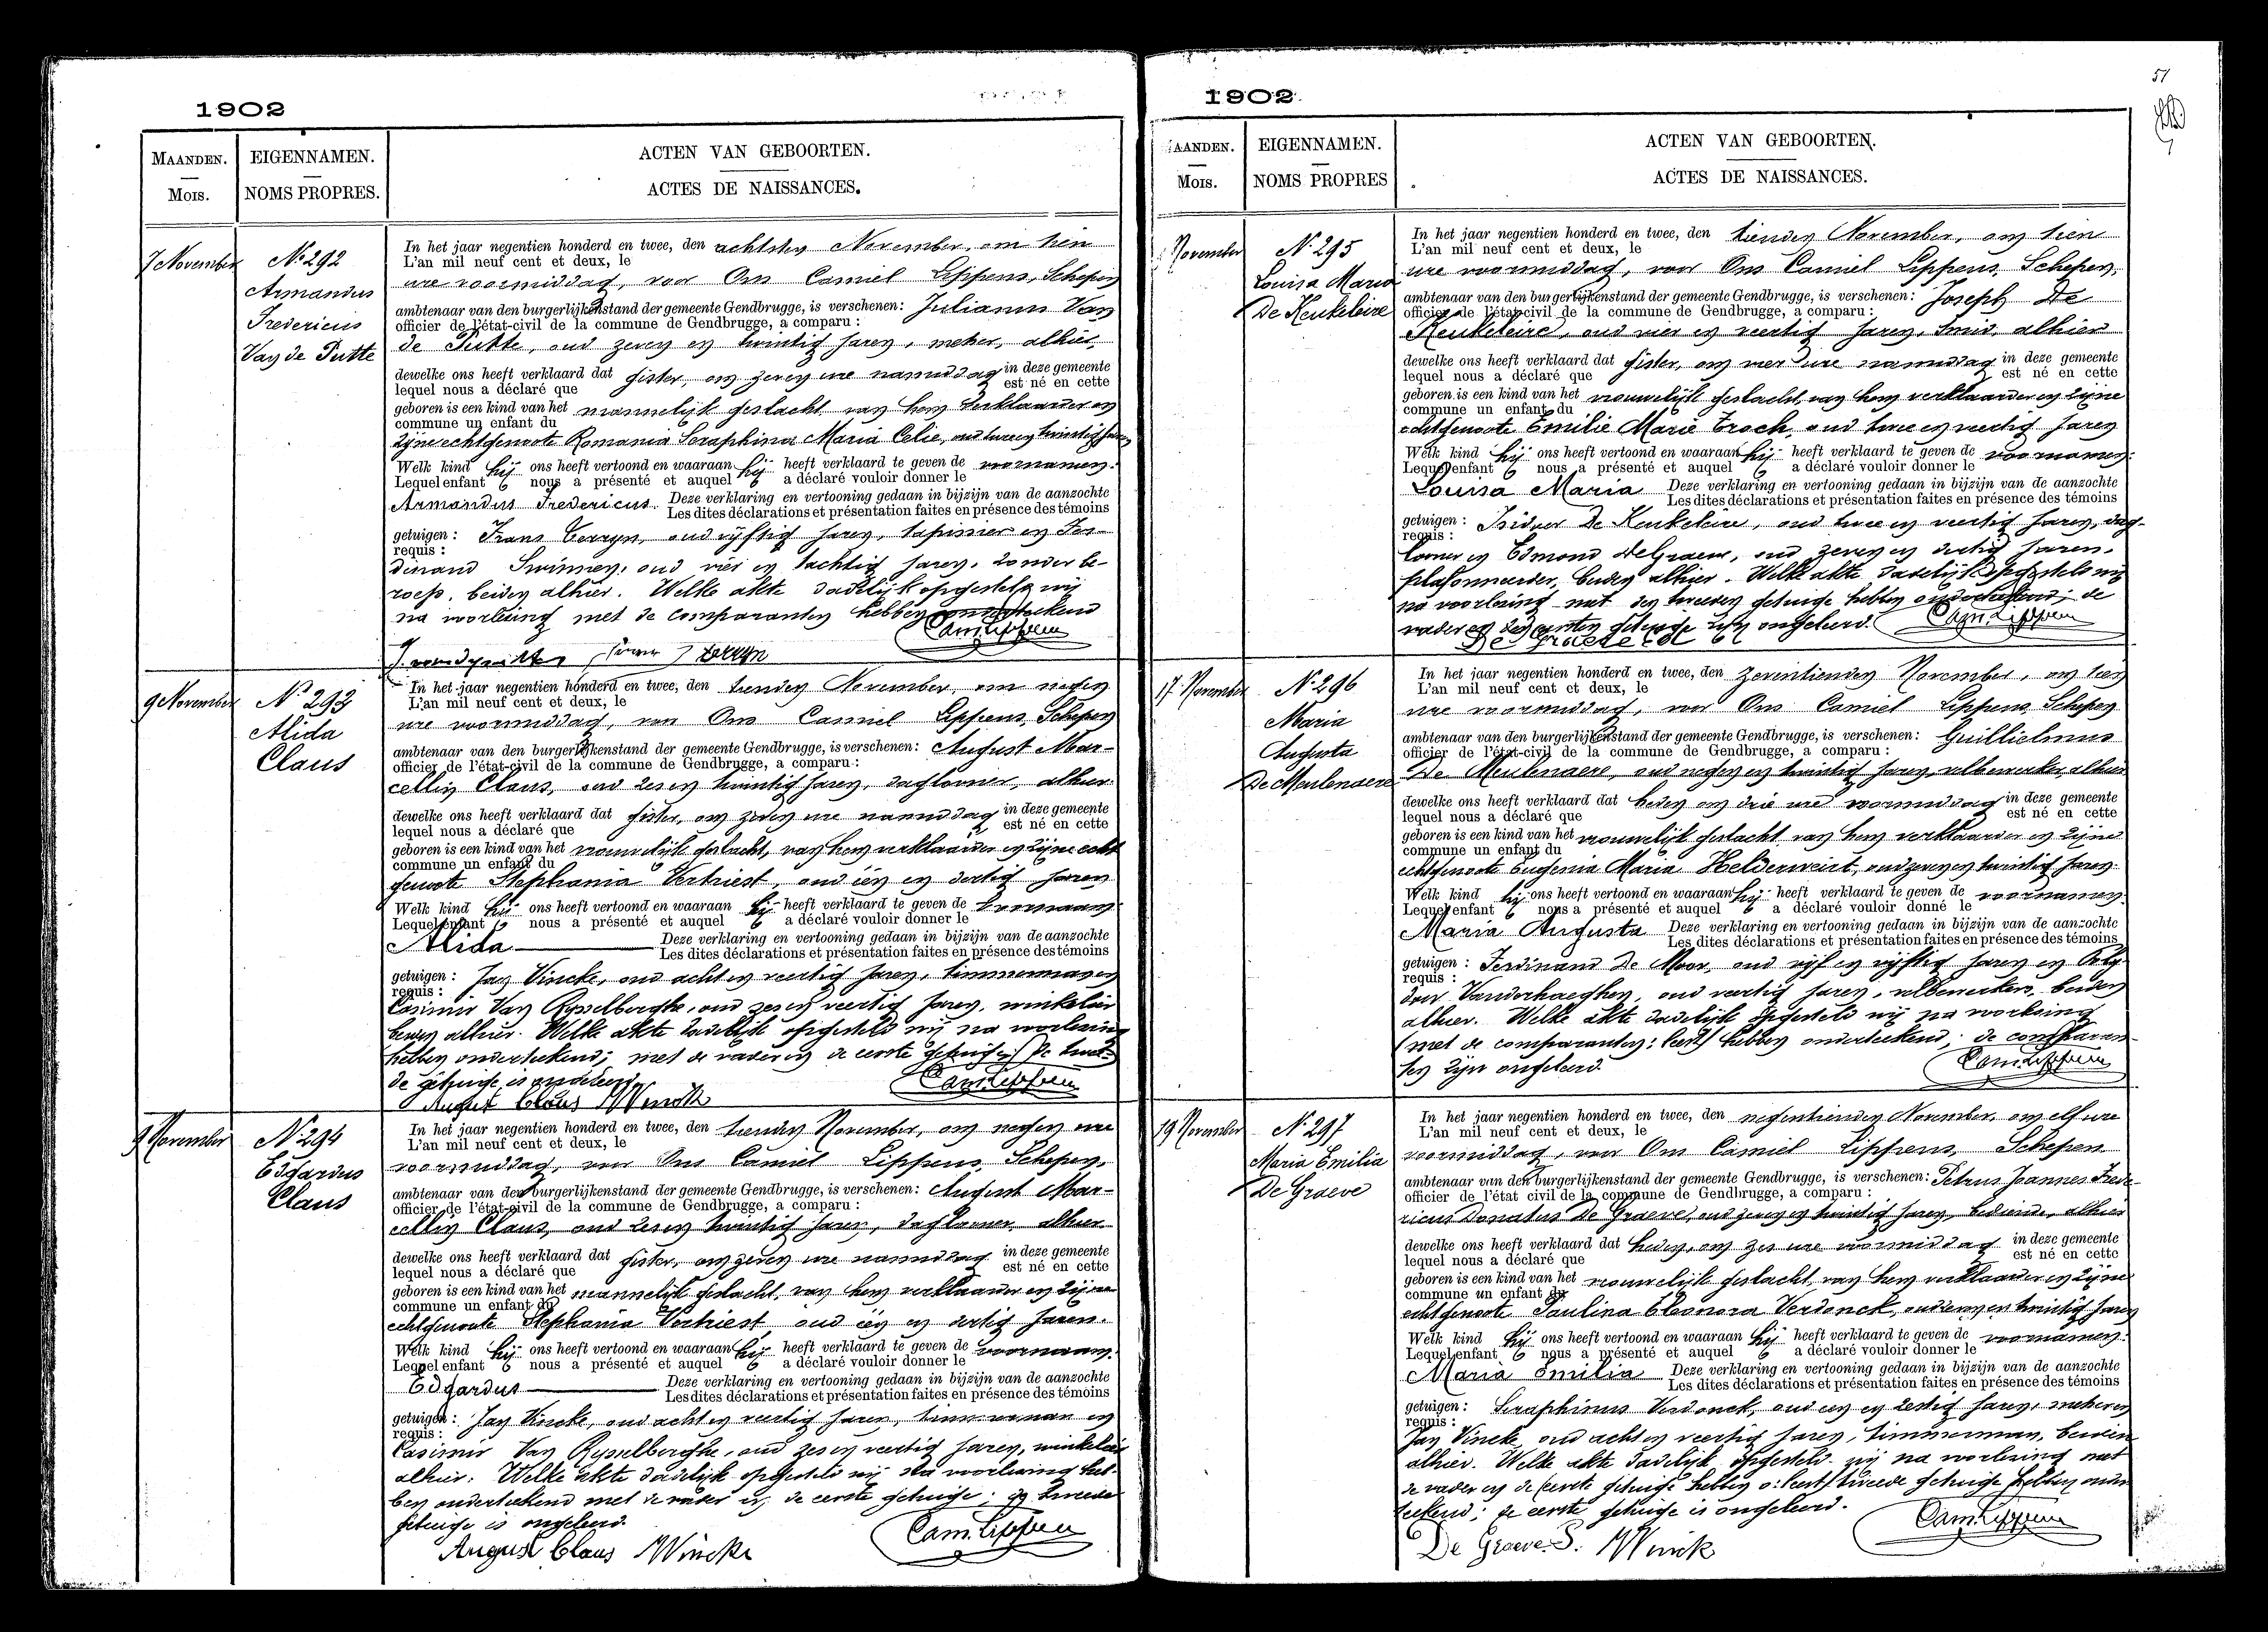 1902
MAANDEN.
Mois.
EIGENNAMEN.
NOMS PROPRES.
ACTEN VAN GEBOORTEN.
ACTES DE NAISSANCES.
7 November
No 292
Armandus
Fredericus
Van de Putte
In het jaar negentien honderd en twee, den achtsten November, om tien
L'an mil neuf cent et deux, le
ure voormiddag, voor Ons Camiel Lippens, Schepen
ambtenaar van den burgerlijkenstand der gemeente Gendbrugge, is verschenen: Julianus Van
officier de l'état-civil de la commune de Gendbrugge, a comparu:
de Putte, oud zeven en twintig jaren, metser, alhier,
dewelke ons heeft verklaard dat gister, om zeven ure namiddag in deze gemeente
lequel nous a déclaré que est né en cette
geboren is een kind van het mannelijk geslacht, van hem verklaarder en
commune un enfant du
zijne echtgenoote Romania Seraphina Maria Celie, oud twintig jaren
Welk kind hij ons heeft vertoond en waaraan hij heeft verklaard te geven de voornamen.
Lequel enfant nous a présenté et auquel a déclaré vouloir donner le
Armandus Fredericus. Deze verklaring en vertooning gedaan in bijzijn van de aanzochte
Les dites déclarations et présentation faites en présence des témoins
getuigen: Frans Verryn, oud vijftig jaren, tapissier en Fer-
requis:
dinand Swinnen, oud vier en tachtig jaren, zonder be-
roep, beiden alhier. Welke akte dadelijk opgesteld wij
na voorlezing met de comparanten hebben onderteekend
Cam. Lippens
9 November
No 293
Alida
Claus
In het jaar negentien honderd en twee, den tienden November, om negen
L'an mil neuf cent et deux, le
ure voormiddag, voor Ons Camiel Lippens, Schepen
ambtenaar van den burgerlijkenstand der gemeente Gendbrugge, is verschenen: August Mar-
officier de l'état-civil de la commune de Gendbrugge, a comparu:
cellin Claus, oud zes en twintig jaren, daglooner, alhier
dewelke ons heeft verklaard dat gister, om zeven ure namiddag in deze gemeente
lequel nous a déclaré que est né en cette
geboren is een kind van het vrouwelijk geslacht, van hem verklaarder en zijne echt
commune un enfant du
genoote Stephania Verhiest, oud één en dertig jaren
Welk kind hij ons heeft vertoond en waaraan hij heeft verklaard te geven de voornaam
Lequel enfant nous a présenté et auquel a déclaré vouloir donner le
Alida Deze verklaring en vertooning gedaan in bijzijn van de aanzochte
Les dites déclarations et présentation faites en présence des témoins
getuigen: Jan Vincke, oud acht en veertig jaren, timmerman en
requis:
Casimir Van Rysselberghe, oud zes en veertig jaren, winkelier
beiden alhier. Welke akte dadelijk opgesteld wij na voorlezing
hebben onderteekend; met de vader en de eerste getuige; de twee-
de getuige is ongeleerd.
Cam. Lippens
August Claus J Vincke
9 November
No 294
Edgardus
Claus
In het jaar negentien honderd en twee, den tienden November, om negen ure
L'an mil neuf cent et deux, le
voormiddag, voor Ons Camiel Lippens, Schepen,
ambtenaar van den burgerlijkenstand der gemeente Gendbrugge, is verschenen: August Mar-
officier de l'état-civil de la commune de Gendbrugge, a comparu:
cellin Claus, oud zes en twintig jaren, daglooner, alhier
dewelke ons heeft verklaard dat gister, om zeven ure namiddag in deze gemeente
lequel nous a déclaré que est né en cette
geboren is een kind van het mannelijk geslacht, van hem verklaarder en zijne
commune un enfant du
echtgenoote Stephania Verhiest, oud één en dertig jaren.
Welk kind hij ons heeft vertoond en waaraan hij heeft verklaard te geven de voornaam.
Lequel enfant nous a présenté et auquel a déclaré vouloir donner le
Edgardus Deze verklaring en vertooning gedaan in bijzijn van de aanzochte
Les dites déclarations et présentation faites en présence des témoins
getuigen: Jan Vincke, oud acht en veertig jaren, timmerman en
requis:
Casimir Van Rysselberghe, oud zes en veertig jaren, winkelier
alhier. Welke akte dadelijk opgesteld wij na voorlezing heb-
ben onderteekend met de vader en de eerste getuige; de tweede
getuige is ongeleerd.
Cam. Lippens
August Claus J Vincke
51
1902
AANDEN.
Mois.
EIGENNAMEN.
NOMS PROPRES
ACTEN VAN GEBOORTEN.
ACTES DE NAISSANCES.
November
No 295
Louisa Maria
De Keukeleire
In het jaar negentien honderd en twee, den tienden November, om tien
L'an mil neuf cent et deux, le
ure voormiddag, voor Ons Camiel Lippens, Schepen,
ambtenaar van den burgerlijkenstand der gemeente Gendbrugge, is verschenen: Joseph De
officier de l'état-civil de la commune de Gendbrugge, a comparu:
Keukeleire, oud vier en veertig jaren, smid, alhier
dewelke ons heeft verklaard dat gister, om vier ure namiddag in deze gemeente
lequel nous a déclaré que est né en cette
geboren is een kind van het vrouwelijk geslacht, van hem verklaarder en zijne
commune un enfant du
echtgenoote Emilie Marie Troch, oud twee en veertig jaren
Welk kind hij ons heeft vertoond en waaraan hij heeft verklaard te geven de voornamen.
Lequel enfant nous a présenté et auquel a déclaré vouloir donner le
Louisa Maria Deze verklaring en vertooning gedaan in bijzijn van de aanzochte
Les dites déclarations et présentation faites en présence des témoins
getuigen: Isidoor De Keukeleire, oud twee en veertig jaren, dag-
requis:
looner en Edmond De Graeve, oud zeven en dertig jaren,
plafonneerder, beiden alhier. Welke akte dadelijk opgesteld wij
na voorlezing met den tweeden getuige hebben onderteekend; de
vader en den eersten getuige zijn ongeleerd.
Cam. Lippens
De Graeve Ed
17 November
No 296
Maria
Augusta
De Meulenaere
In het jaar negentien honderd en twee, den zeventienden November, om tien
L'an mil neuf cent et deux, le
ure voormiddag, voor Ons Camiel Lippens, Schepen
ambtenaar van den burgerlijkenstand der gemeente Gendbrugge, is verschenen: Guillielmus
officier de l'état-civil de la commune de Gendbrugge, a comparu:
De Meulenaere, oud negen en twintig jaren, velbewerker, alhier
dewelke ons heeft verklaard dat heden om drie ure voormiddag in deze gemeente
lequel nous a déclaré que est né en cette
geboren is een kind van het vrouwelijk geslacht van hem verklaarder en zijne
commune un enfant du
echtgenoote Eugenia Maria Helderweirt, oud zeven en twintig jaren.
Welk kind hij ons heeft vertoond en waaraan hij heeft verklaard te geven de voornamen
Lequel enfant nous a présenté et auquel a déclaré vouloir donné le
Maria Augusta Deze verklaring en vertooning gedaan in bijzijn van de aanzochte
Les dites déclarations et présentation faites en présence des témoins
getuigen: Ferdinand De Moor, oud vijf en vijftig jaren en Poly-
requis:
door Vanderhaeghen, oud veertig jaren, velbewerkers, beiden
alhier. Welke akte dadelijk opgesteld wij na voorlezing
(met de comparanten: leest) hebben onderteekend; de comparan-
ten zijn ongeleerd.
Cam. Lippens
19 November
No 297
Maria Emilia
De Graeve
In het jaar negentien honderd en twee, den negentienden November, om elf ure
L'an mil neuf cent et deux, le
voormiddag, voor Ons Camiel Lippens, Schepen
ambtenaar van den burgerlijkenstand der gemeente Gendbrugge, is verschenen: Petrus Joannes Frede-
officier de l'état civil de la commune de Gendbrugge, a comparu:
ricus Donatus De Graeve, oud zeven en twintig jaren, bediende, alhier
dewelke ons heeft verklaard dat heden, om zes ure voormiddag in deze gemeente
lequel nous a déclaré que est né en cette
geboren is een kind van het vrouwelijk geslacht, van hem verklaarder en zijne
commune un enfant du
echtgenoote Paulina Eleonora Verdonck, oud en twintig jaren
Welk kind hij ons heeft vertoond en waaraan hij heeft verklaard te geven de voornamen.
Lequel enfant nous a présenté et auquel a déclaré vouloir donner le
Maria Emilia Deze verklaring en vertooning gedaan in bijzijn van de aanzochte
Les dites déclarations et présentation faites en présence des témoins
getuigen: Seraphinus Verdonck, oud een en zestig jaren, metser en
requis:
Jan Vincke, oud acht en veertig jaren, timmerman, beiden
alhier. Welke akte dadelijk opgesteld wij na voorlezing met
de vader en de (eerste getuige hebben o: leest) tweede getuige hebben onder
teekend; de eerste getuige is ongeleerd.
Cam. Lippens
De Graeve. P. J Vincke